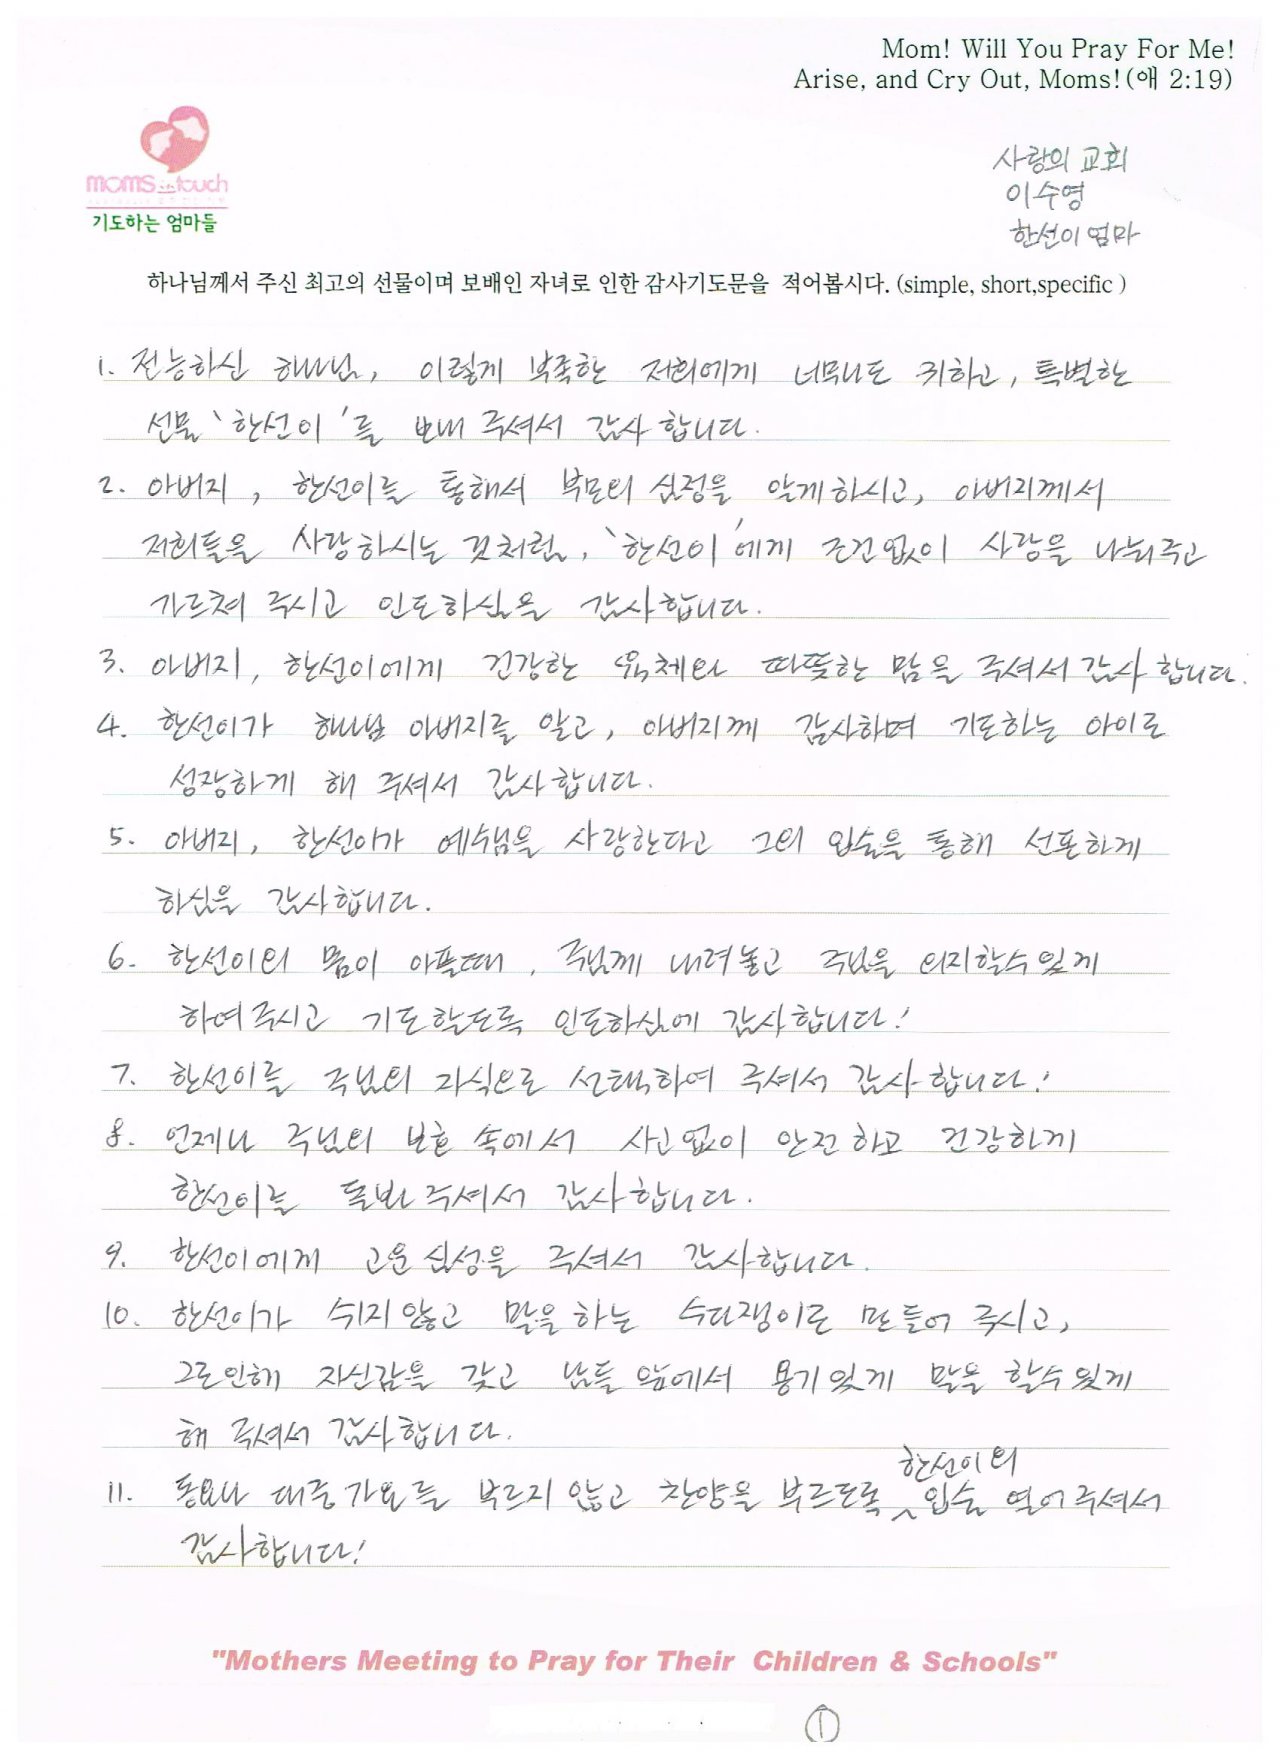 Mom! Will You Pray For Me!
Arise, and Cry Out, Moms!(애 2:19)
moms in touch
기도하는 엄마들
사랑의 교회
이수영
한선이 엄마
하나님께서 주신 최고의 선물이며 보배인 자녀로 인한 감사기도문을 적어봅시다. (simple, short,specific )
1. 전능하신 하나님, 이렇게 부족한 저희에게 너무나도 귀하고, 특별한
선물 '한선이'를 보내 주셔서 감사합니다.
2. 아버지, 한선이를 통해서 부모의 심정을 알게하시고, 아버지께서
저희들을 사랑하시는 것처럼, '한선이'에게 조건없이 사랑을 나눠주고
가르쳐 주시고 인도하심을 감사합니다.
3. 아버지, 한선이에게 건강한 육체와 따뜻한 맘을 주셔서 감사합니다.
4. 한선이가 하나님 아버지를 알고, 아버지께 감사하며 기도하는 아이로
성장하게 해 주셔서 감사합니다.
5. 아버지, 한선이가 예수님을 사랑한다고 그의 입술을 통해 선포하게
하심을 감사합니다.
6. 한선이의 몸이 아플때, 주님께 내려놓고 주님을 의지할수있게
하여주시고 기도할도록 인도하심에 감사합니다!
7. 한선이를 주님의 자식으로 선택하여 주셔서 감사합니다!
8. 언제나 주님의 보호 속에서 사고없이 안전하고 건강하게
한선이를 돌봐 주셔서 감사합니다.
9. 한선이에게 고운 심성을 주셔서 감사합니다.
10. 한선이가 쉬지않고 말을 하는 수다쟁이로 만들어 주시고,
그로인해 자신감을 갖고 남들 앞에서 용기있게 말을 할수있게
해 주셔서 감사합니다.
11. 동요나 대중가요를 부르지 않고 찬양을 부르도록 한선이의 입술 열어주셔서
감사합니다!
"Mothers Meeting to Pray for Their Children & Schools"
①